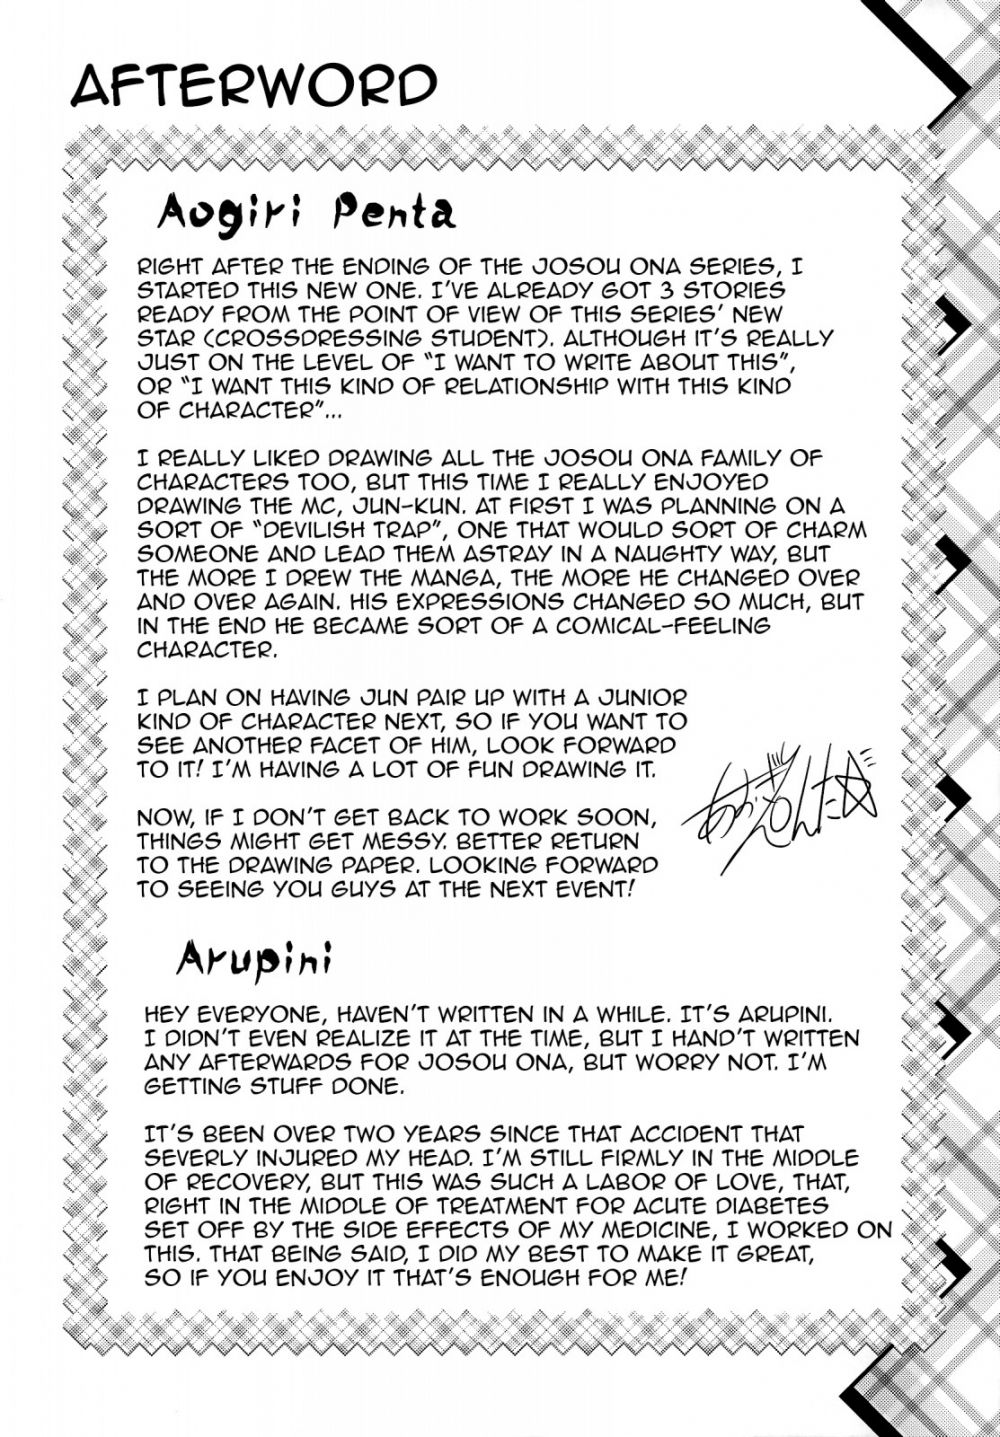 AFTERWORD
Aogiri Penta
RIGHT AFTER THE ENDING OF THE JOSOU ONA SERIES, I
STARTED THIS NEW ONE. I'VE ALREADY GOT 3 STORIES
READY FROM THE POINT OF VIEW OF THIS SERIES' NEW
STAR (CROSSDRESSING STUDENT). ALTHOUGH IT'S REALLY
JUST ON THE LEVEL OF "I WANT TO WRITE ABOUT THIS",
OR "I WANT THIS KIND OF RELATIONSHIP WITH THIS KIND
OF CHARACTER"...
I REALLY LIKED DRAWING ALL THE JOSOU ONA FAMILY OF
CHARACTERS TOO, BUT THIS TIME I REALLY ENJOYED
DRAWING THE MC, JUN-KUN. AT FIRST I WAS PLANNING ON A
SORT OF "DEVILISH TRAP", ONE THAT WOULD SORT OF CHARM
SOMEONE AND LEAD THEM ASTRAY IN A NAUGHTY WAY, BUT
THE MORE I DREW THE MANGA, THE MORE HE CHANGED OVER
AND OVER AGAIN. HIS EXPRESSIONS CHANGED SO MUCH, BUT
IN THE END HE BECAME SORT OF A COMICAL-FEELING
CHARACTER.
I PLAN ON HAVING JUN PAIR UP WITH A JUNIOR
KIND OF CHARACTER NEXT, SO IF YOU WANT TO
SEE ANOTHER FACET OF HIM, LOOK FORWARD
TO IT! I'M HAVING A LOT OF FUN DRAWING IT.
NOW, IF I DON'T GET BACK TO WORK SOON,
THINGS MIGHT GET MESSY. BETTER RETURN
TO THE DRAWING PAPER. LOOKING FORWARD
TO SEEING YOU GUYS AT THE NEXT EVENT!
あおぎり
ぺんた☆
Arupini
HEY EVERYONE, HAVEN'T WRITTEN IN A WHILE. IT'S ARUPINI.
I DIDN'T EVEN REALIZE IT AT THE TIME, BUT I HAND'T WRITTEN
ANY AFTERWARDS FOR JOSOU ONA, BUT WORRY NOT. I'M
GETTING STUFF DONE.
IT'S BEEN OVER TWO YEARS SINCE THAT ACCIDENT THAT
SEVERLY INJURED MY HEAD. I'M STILL FIRMLY IN THE MIDDLE
OF RECOVERY, BUT THIS WAS SUCH A LABOR OF LOVE, THAT,
RIGHT IN THE MIDDLE OF TREATMENT FOR ACUTE DIABETES
SET OFF BY THE SIDE EFFECTS OF MY MEDICINE, I WORKED ON
THIS. THAT BEING SAID, I DID MY BEST TO MAKE IT GREAT,
SO IF YOU ENJOY IT THAT'S ENOUGH FOR ME!